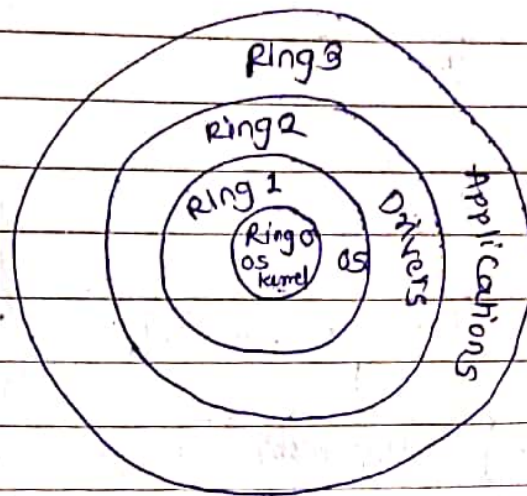 Ring 3
Ring 2
Ring 1
Ring 0
OS
kernel
OS
Drivers
Applications